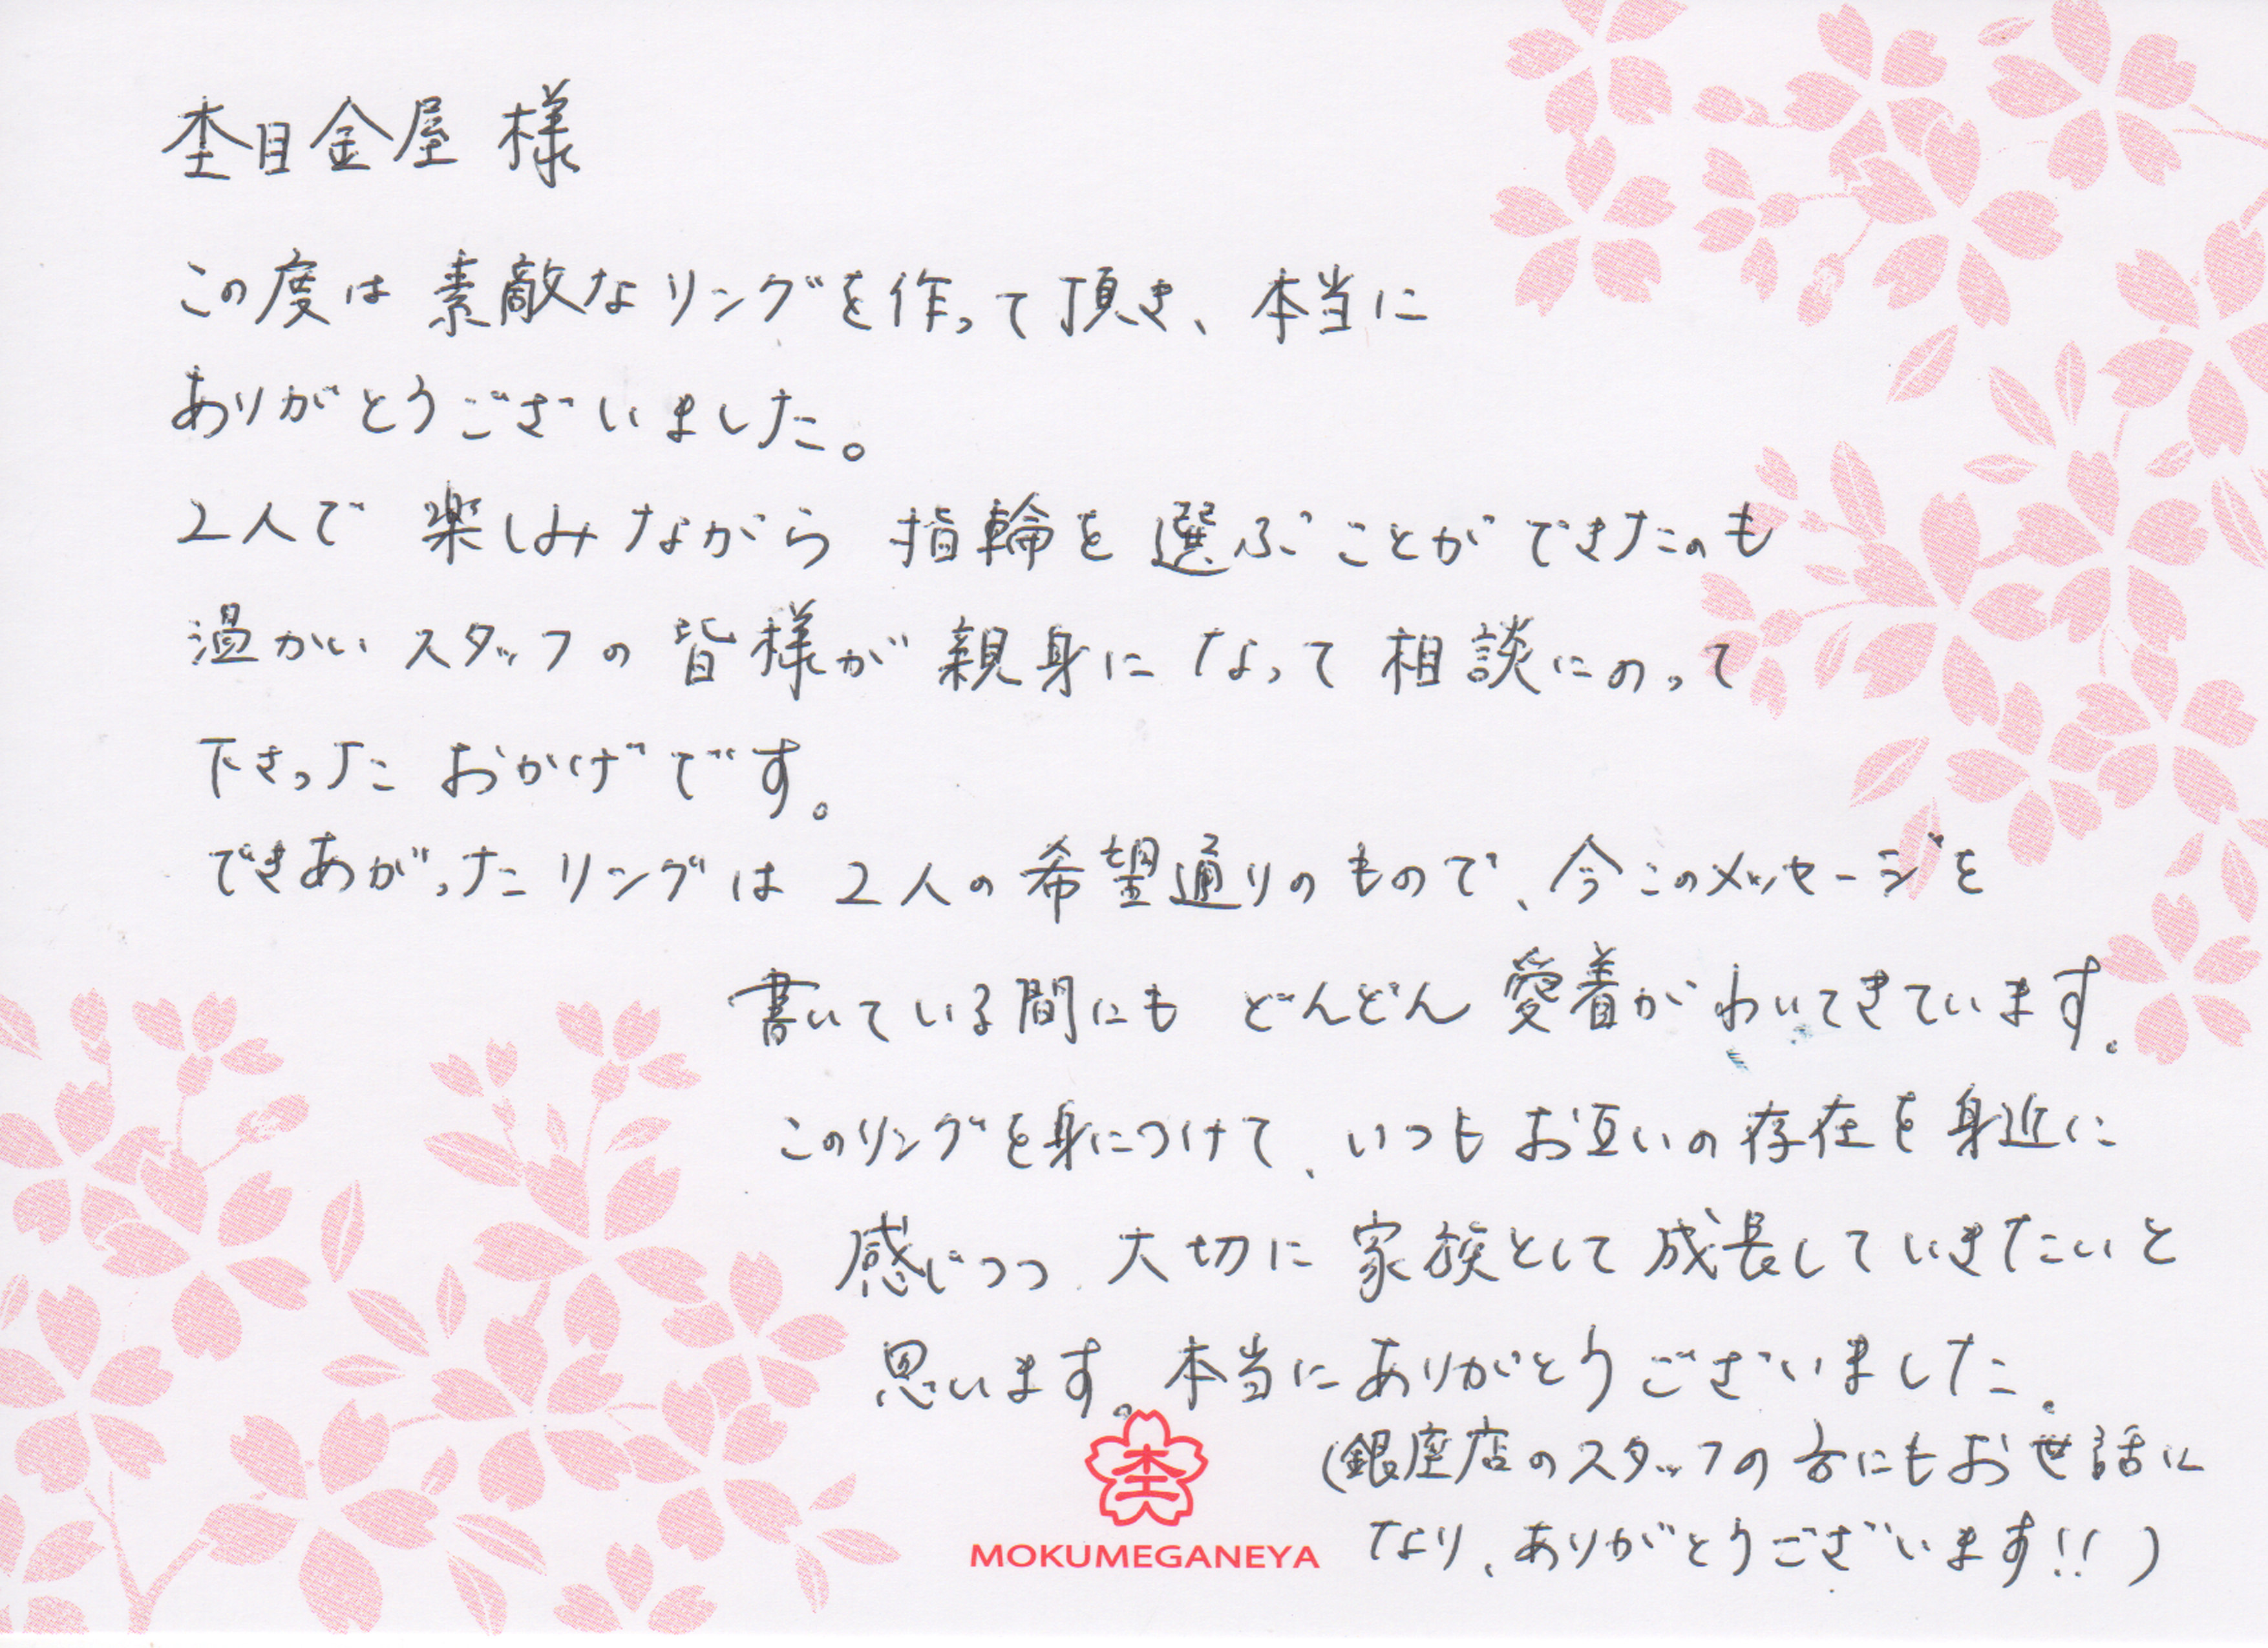 杢目金屋 様
この度は 素敵なリングを作って頂き、本当に
ありがとうございました。
2人で 楽しみながら 指輪を 選ぶことができたのも
温かい スタッフの 皆様が 親身に なって 相談にのって
下さった おかげです。
できあがったリングは 2人の 希望通りのもので、今このメッセージを
書いている間にも どんどん 愛着が わいてきています。
このリングを身につけて、いつも お互いの 存在を 身近に
感じつつ、大切に 家族として 成長していきたいと
思います。本当に ありがとうございました。
(銀座店のスタッフの 方にもお世話に
なり、ありがとうございます!!)
杢
MOKUMEGANEYA